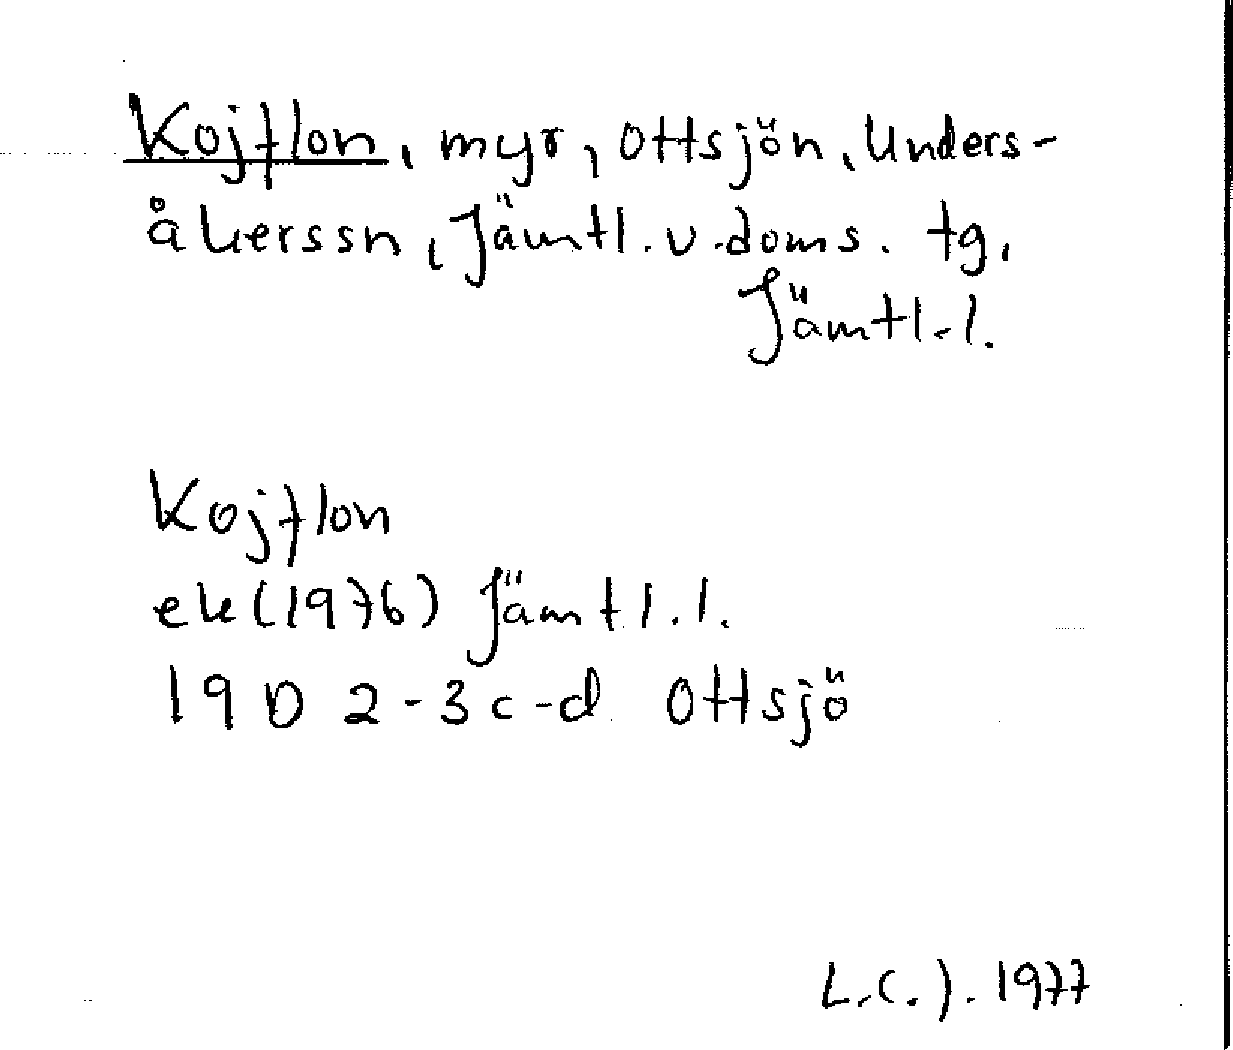 Kojflon, myr, Ottsjön, Unders-
åkerssn, Jämtl. v. doms. tg,
Jämtl. l.
Kojflon
ek (1976) Jämtl. l.
19 D 2-3 c-d Ottsjö
L.C.J. 1977